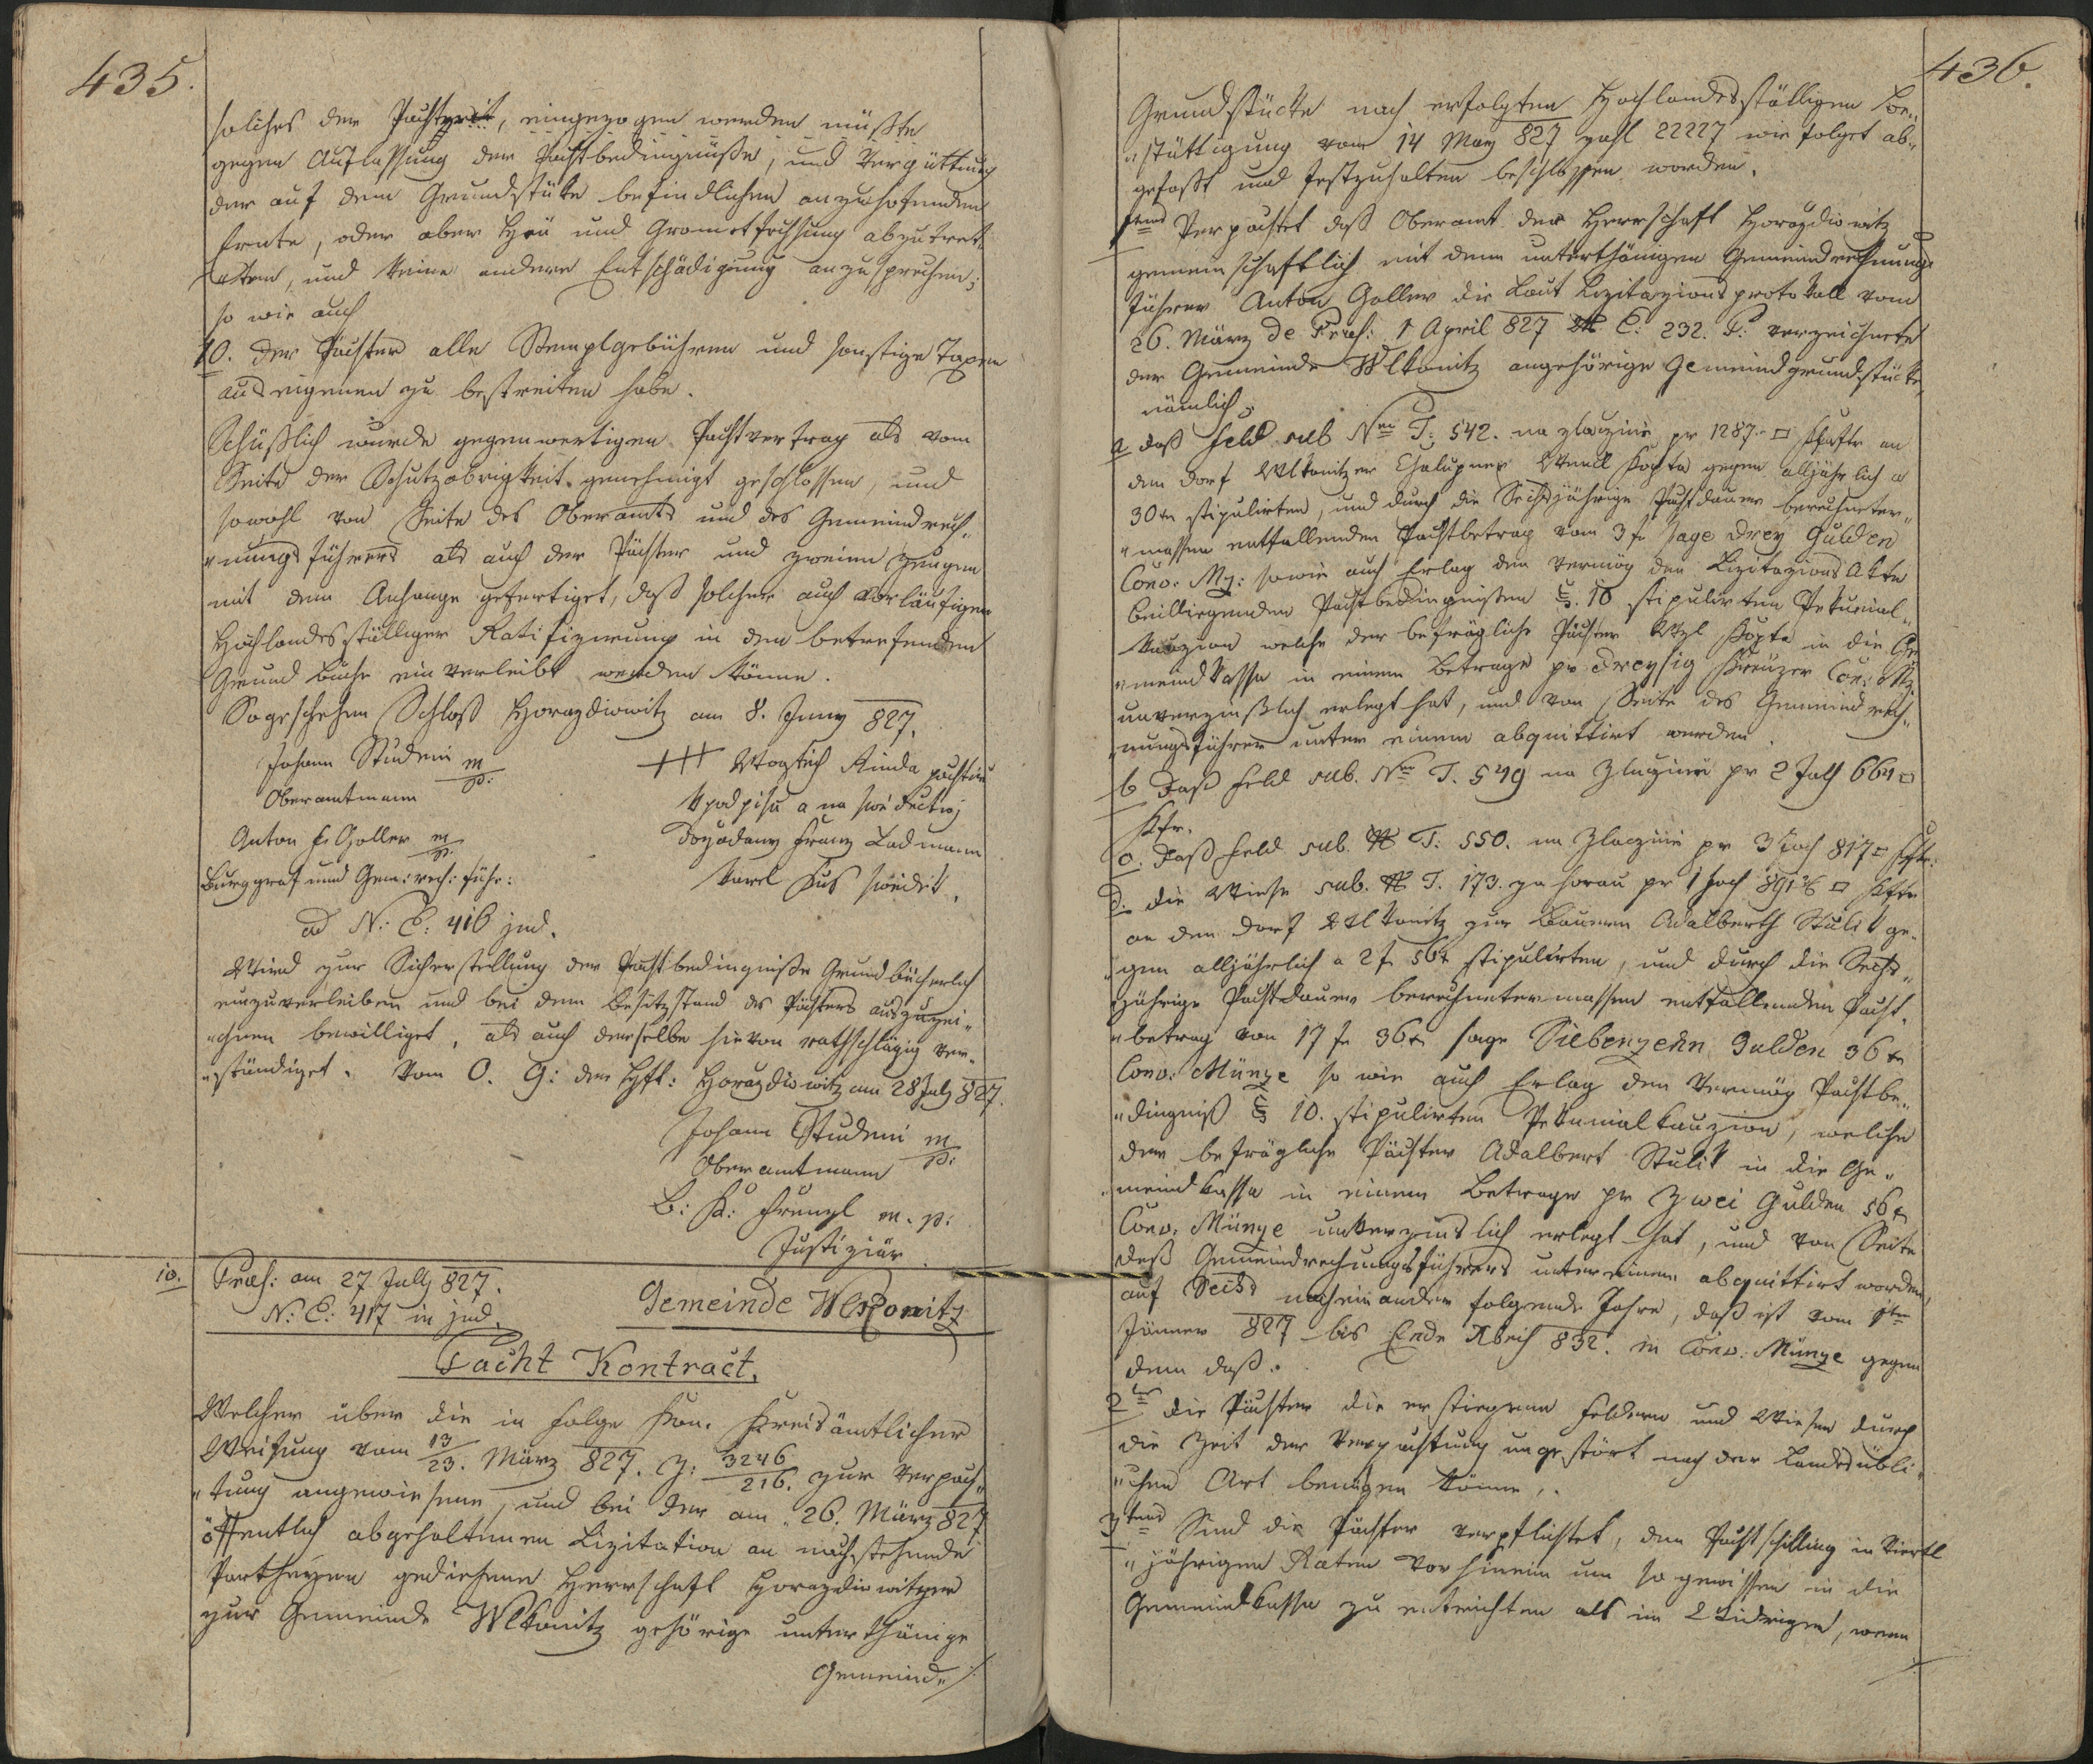 435.
solches der Pachtzeit, eingezogen werden müßte
gegen Auflassung der Pachtbedingnüße, und Vergüttung
der auf dem Grundstüke befindlichen anzuhofenden
Ernte, oder aber Heu und Grometfechsung abzutret-
ten, und keine andere Entschädigung anzusprechen;
so wie auch
10. Der Pächter alle Stemplgebühren und sonstige Taxen
aus eigenen zu bestreiten habe.
Schüßlich wurde gegenwertigen Pachtvertrag als vom
Seite der Schutzobrigkeit genehmigt geschlossen, und
sowohl von Seite des Oberamts und des Gemeindrech„
„nungsführers als auch der Pächter und zweien Zeugen
mit dem Anhange gefertiget, daß solcher auch vorläufigen
Hochlandesställiger Ratifizirung in dem betrefenden
Grundbuche einverleibt werden könne.
So geschehen Schloß Horazdiowitz am 8. Juny 827.
Johann Studeni m/p:
Oberamtmann
+++ Woytich Kinda pachtir
Anton F. Goller m/p.
Burggraf und Gem: rech: führ:
Podpisu a na swedectwj
Dozadany Franz Ladmann
Karel Kus swedek.
ad N: E: 416 jud.
Wird zur Sicherstellung der Pachtbedingniße Grundbücherlich
einzuverleiben und bei dem Besitzstand des Pächters auszuzei„
„chnen bewilliget, als auch derselbe hievon rathschlägig ver„
„ständiget. Vom O. A: der Hft: Horazdiowitz am 28 July 827.
Johann Studeni m/p:
Oberamtmann
Frenzl m. p.
Justiziär
10. Præs: am 27 July 827.
N: E: 417 in jud.
Gemeinde Wlkonitz
Pacht Kontract.
Welcher über die in Folge Kön. Kreisämtlicher
Weisung vom 13/23. März 827. Z: 3246/216. zur Verpach„
„tung angewiesene, und bei der am 26. März 827
öffentlich abgehaltenen Lizitation an nachstehende
Partheyen gediehene Herrschaft Horazdiowitzer
zur Gemeinde Wlkonitz gehörige unterthänige
Gemeind„
436.
Grundstücke nach erfolgten Hochlandesställigen Be„
„stättigung vom 14 May 827 Zahl 22227 wie folget ab„
gefaßt und festzuhalten beschloßen worden.
1tens Verpachtet daß Oberamt der Herrschaft Horazdiowitz
gemeinschaftlich mit dem unterthänigen Gemeindrechnungs
führer Anton Goller die Laut Lizitazionsprotokoll vom
26. März de Præs: 1 April 827 E: 232. P: verzeichnete
der Gemeinde Wlkonitz angehörige Gemeindgrundstücke,
nämlich:
a daß Feld sub Nro T: 542. na zlaczinie pr 1287 □ Klafter an
den Dorf Wlkonitzer Chalupner Wenzl Kopta gegen alljährlich a
30 xr stipulirten, und durch die Sechsjährige Pachtdauer berechneter„
„massen entfallenden Pachtbetrag vom 3 fr sage Drey Gulden
Conv: Mz: sowie auch Erlag der vermög den Lizitazions Akte
beiliegenden Pachtbedingnißen §. 10 stipulirten Pekunial„
kauzion welche der befrägliche Pächter Wzl Kopta in die Ge
„meindkassa in einem Betrage pr Dreyßig Kreuzer Con: Mz
unverzinßlich erlegt hat, und von Seite des Gemeindrech„
nungsführer unter einem abquittirt werden
b Daß Feld sub. Nro T. 549 na Zlazinie pr 2 Joch 664 □
Kftr.
c. Daß Feld sub. N T: 550. na Zlazinie pr 3 Joch 817 □ Kftr:
d. Die Wiese sub. N T. 173. za horau pr 1 Joch □ Kftr
an den Dorf Wlkonitzer Bauern Adalberth Stulik ge„
„gen alljährlich a 2 f 56 xr stipulirten, und durch die Sechs„
jährige Pachtdauer berechnetermassen entfallenden Pacht„
„betrag von 17 f 36 xr sage Siebenzehn Gulden 36 xr
Conv: Münze so wie auch Erlag den Vermög Pachtbe„
„dingniß § 10. stipulirten Pekunialkauzion, welche
der befrägliche Pächter Adalbert Stulik in die Ge„
„meindkassa in einem Betrage pr Zwei Gulden 56 xr
Conv: Münze unverzinslich erlegt hat, und von Seite
deß Gemeindrechnungsführers unter einem abquittirt worden,
auf Sechs nacheinander folgende Jahre, daß ist vom 1ten
Jänner 827 bis Ende Xbris 832. in Conv: Münze gegen
dem daß.
2tens Die Pächter die erstiegene Feldern und Wiesen durch
die Zeit der Verpachtung ungestört nach der Landsübli„
„chen Art benützen können.
3tens Sind die Pächter verpflichtet, den Pachtschilling in Viertl
„jährigen Raten vorhinein um so gewissen in die
Gemeindkassa zu entrichten als im Widrigen, wenn